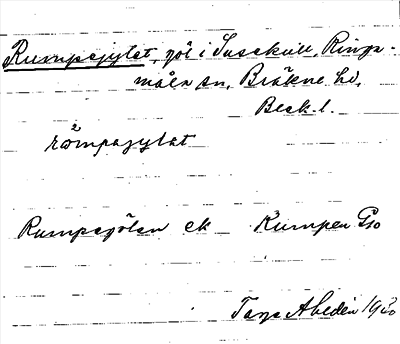 Rumpagylet, göl i Susekull, Rings-
måla sn, Bräkne hd,
Beck. l.
römpagylet
Rumpagölen ek Rumpen Gso
Tage Ahedén 19